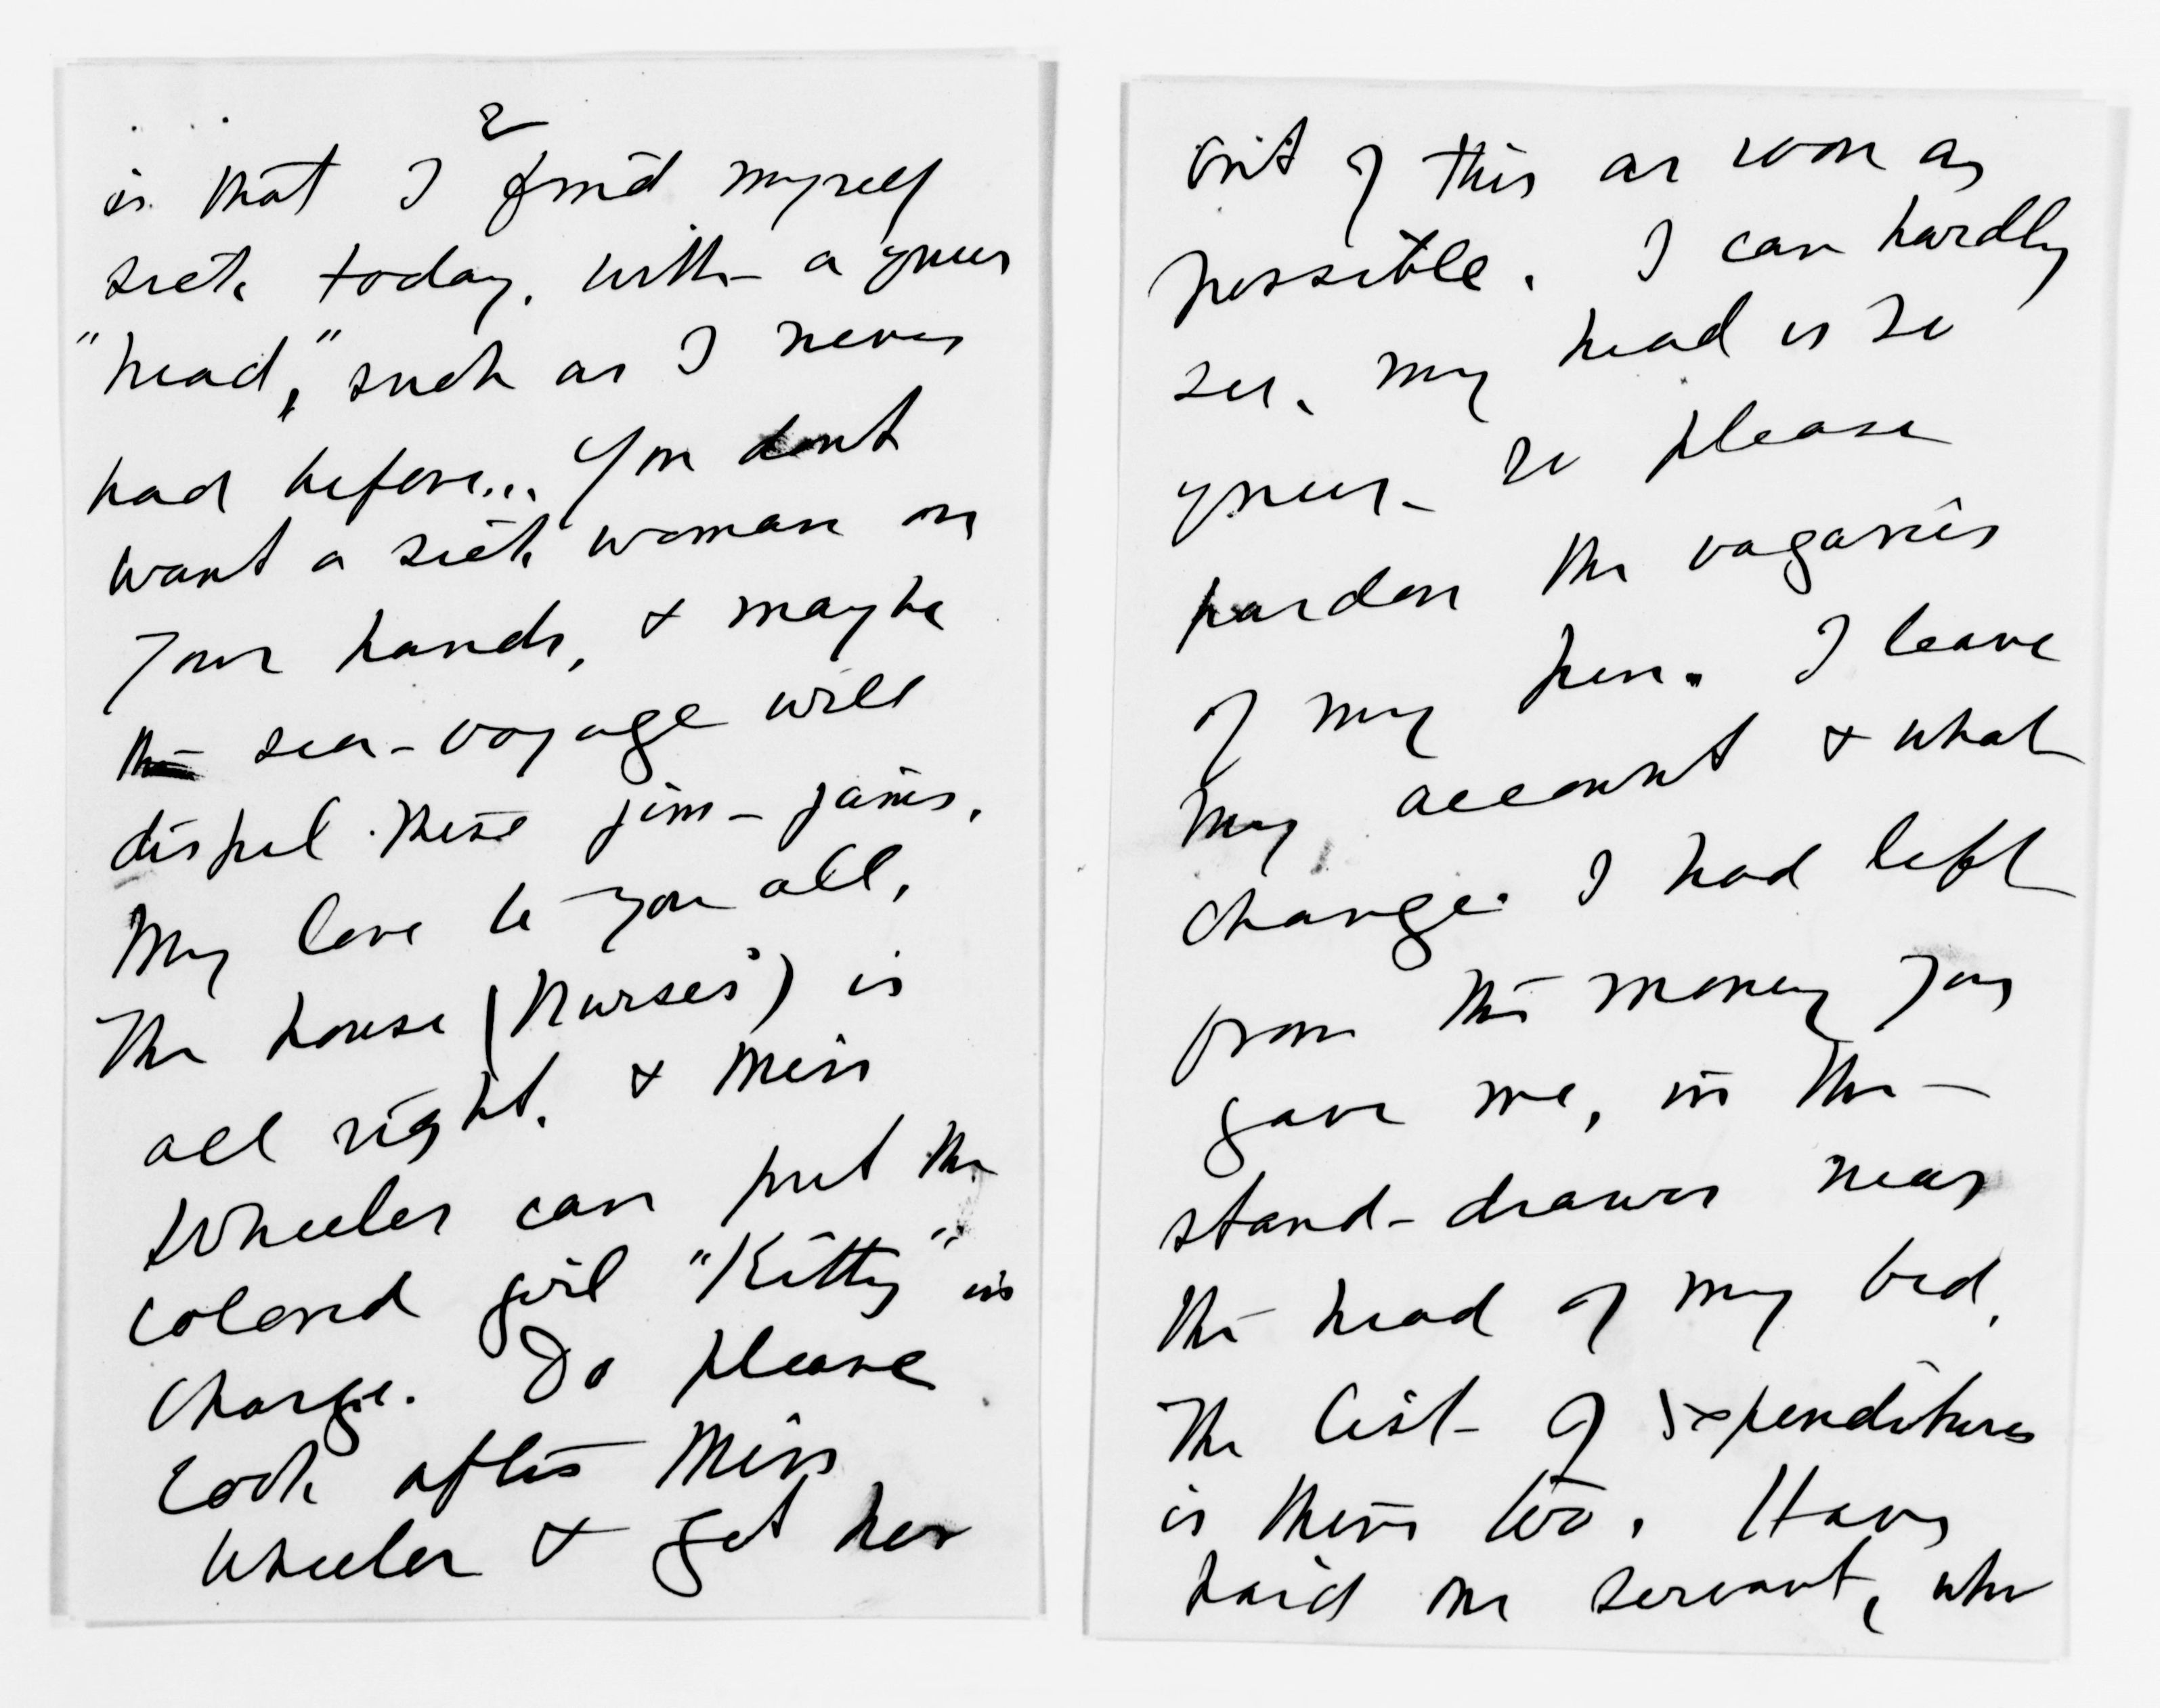 2
is that I find myself
sick today, with a queer
"head," such as I never
had before... You dont
want a sick woman on
your hands, & maybe
the sea-voyage will
dispel these jim-jams.
My love to you all,
The house (Nurses') is
all right, & Miss
Wheeler can put the
colored girl "Kitty" in
charge. Do please
look after Miss
Wheeler & get her
out of this as soon as
possible. I can hardly
see, my head is so
queer - so please
pardon the vagaries
of my pen. I leave
my account & what
change I had left
from the money you
gave me, in the
stand-drawer near
the head of my bed.
The list of Expenditures
is there too. Have
paid one servant, who